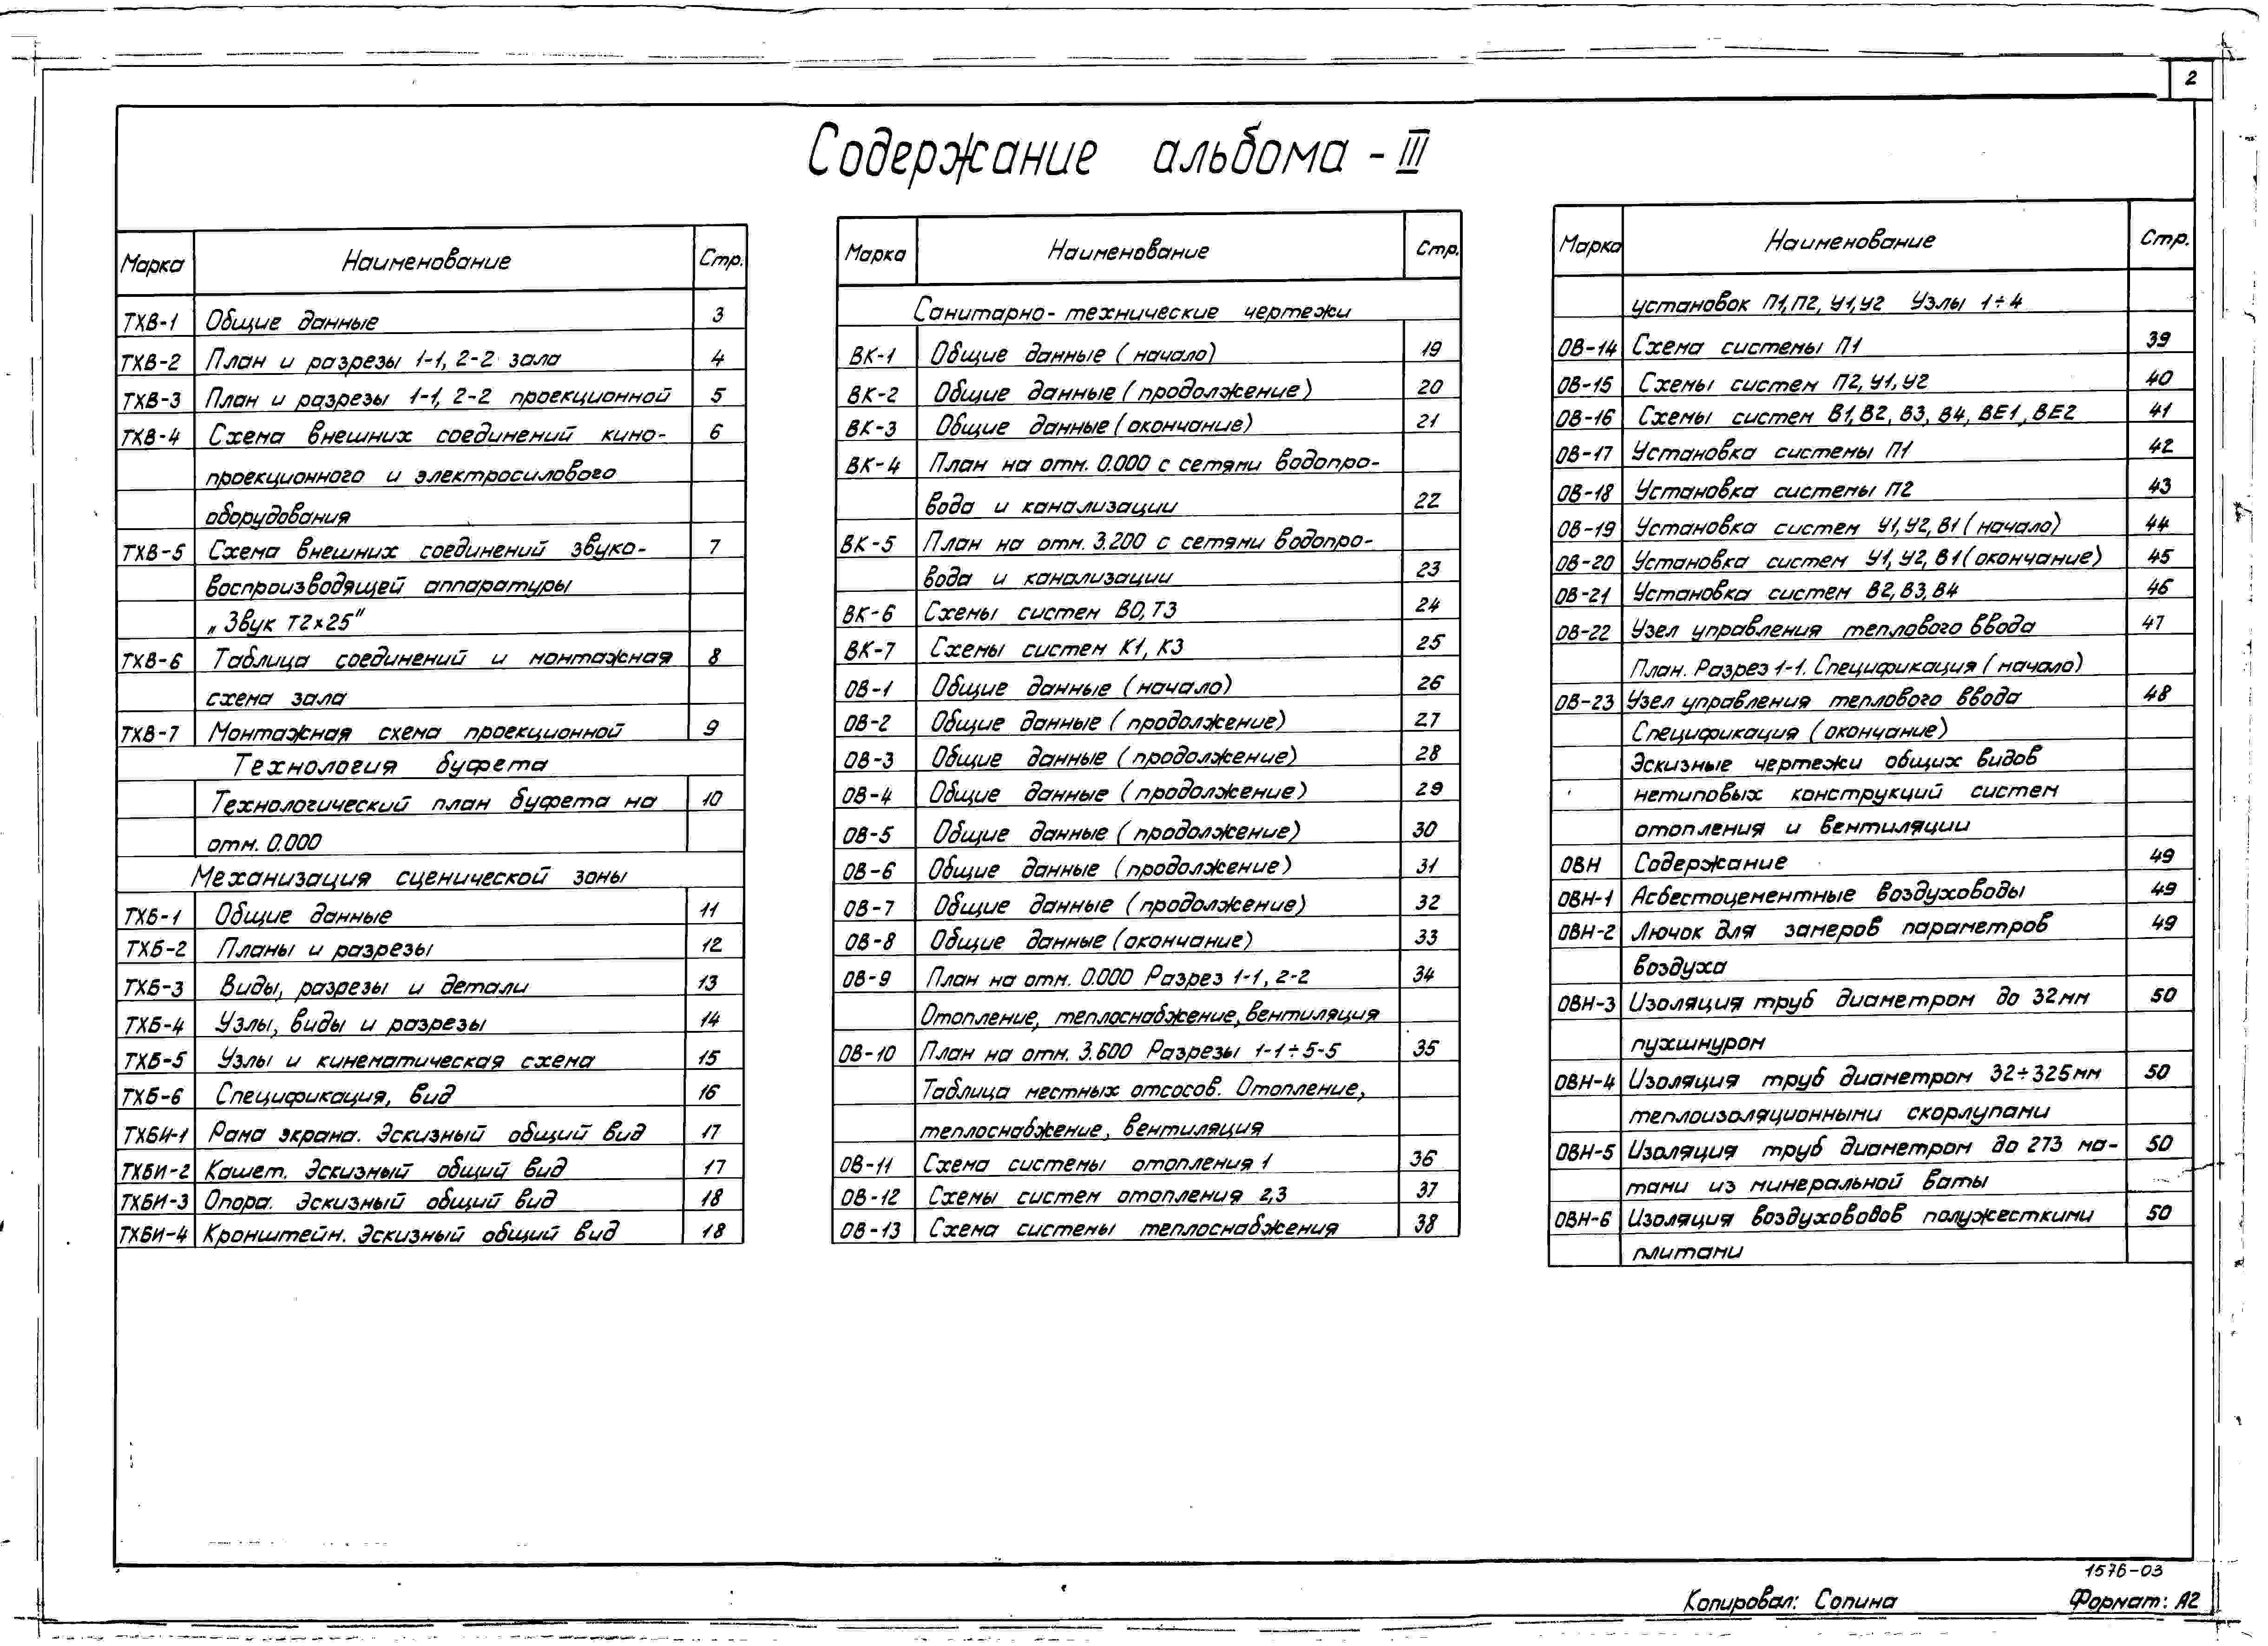 2
Содержание альбома - III
Марка Наименование Стр.
ТХВ-1 Общие данные 3
ТХВ-2 План и разрезы 1-1, 2-2 зала 4
ТХВ-3 План и разрезы 1-1, 2-2 проекционной 5
ТХВ-4 Схема внешних соединений кино- 6
проекционного и электросилового
оборудования
ТХВ-5 Схема внешних соединений звуко- 7
воспроизводящей аппаратуры
„Звук Т2х25"
ТХВ-6 Таблица соединений и монтажная 8
схема зала
ТХВ-7 Монтажная схема проекционной 9
Технология буфета
Технологический план буфета на 10
отм. 0.000
Механизация сценической зоны
ТХБ-1 Общие данные 11
ТХБ-2 Планы и разрезы 12
ТХБ-3 Виды, разрезы и детали 13
ТХБ-4 Узлы, виды и разрезы 14
ТХБ-5 Узлы и кинематическая схема 15
ТХБ-6 Спецификация, вид 16
ТХБИ-1 Рама экрана. Эскизный общий вид 17
ТХБИ-2 Кашет. Эскизный общий вид 17
ТХБИ-3 Опора. Эскизный общий вид 18
ТХБИ-4 Кронштейн. Эскизный общий вид 18
Марка Наименование Стр.
Санитарно-технические чертежи
ВК-1 Общие данные (начало) 19
ВК-2 Общие данные (продолжение) 20
ВК-3 Общие данные (окончание) 21
ВК-4 План на отм. 0.000 с сетями водопро-
вода и канализации 22
ВК-5 План на отм. 3.200 с сетями водопро-
вода и канализации 23
ВК-6 Схемы систем ВО, Т3 24
ВК-7 Схемы систем К1, К3 25
ОВ-1 Общие данные (начало) 26
ОВ-2 Общие данные (продолжение) 27
ОВ-3 Общие данные (продолжение) 28
ОВ-4 Общие данные (продолжение) 29
ОВ-5 Общие данные (продолжение) 30
ОВ-6 Общие данные (продолжение) 31
ОВ-7 Общие данные (продолжение) 32
ОВ-8 Общие данные (окончание) 33
ОВ-9 План на отм. 0.000 Разрез 1-1, 2-2 34
Отопление, теплоснабжение, вентиляция
ОВ-10 План на отм. 3.600 Разрезы 1-1÷5-5 35
Таблица местных отсосов. Отопление,
теплоснабжение, вентиляция
ОВ-11 Схема системы отопления 1 36
ОВ-12 Схемы систем отопления 2,3 37
ОВ-13 Схема системы теплоснабжения 38
Марка Наименование Стр.
установок П1, П2, У1, У2 Узлы 1÷4
ОВ-14 Схема системы П1 39
ОВ-15 Схемы систем П2, У1, У2 40
ОВ-16 Схемы систем В1, В2, В3, В4, ВЕ1, ВЕ2 41
ОВ-17 Установка системы П1 42
ОВ-18 Установка системы П2 43
ОВ-19 Установка систем У1, У2, В1 (начало) 44
ОВ-20 Установка систем У1, У2, В1 (окончание) 45
ОВ-21 Установка систем В2, В3, В4 46
ОВ-22 Узел управления теплового ввода 47
План. Разрез 1-1. Спецификация (начало)
ОВ-23 Узел управления теплового ввода 48
Спецификация (окончание)
Эскизные чертежи общих видов
нетиповых конструкций систем
отопления и вентиляции
ОВН Содержание 49
ОВН-1 Асбестоцементные воздуховоды 49
ОВН-2 Лючок для замеров параметров 49
воздуха
ОВН-3 Изоляция труб диаметром до 32мм 50
пухшнуром
ОВН-4 Изоляция труб диаметром 32÷325мм 50
теплоизоляционными скорлупами
ОВН-5 Изоляция труб диаметром до 273 ма- 50
тами из минеральной ваты
ОВН-6 Изоляция воздуховодов полужесткими 50
плитами
1576-03
Копировал: Сопина Формат: А2